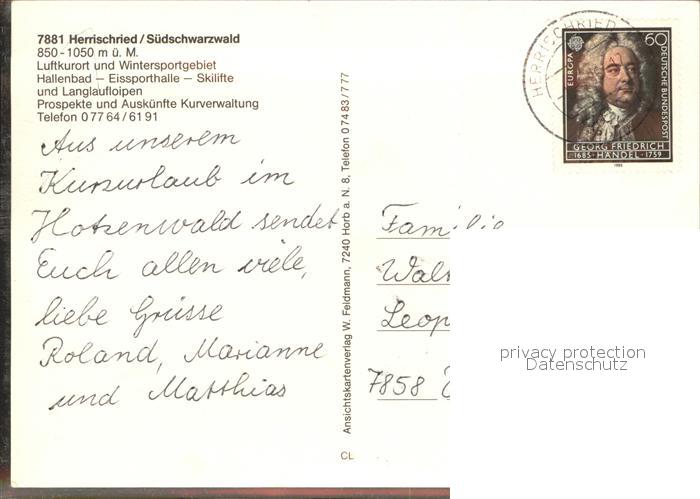 7881 Herrischried / Südschwarzwald
850-1050 m ü. M.
Luftkurort und Wintersportgebiet
Hallenbad – Eissporthalle – Skilifte
und Langlaufloipen
Prospekte und Auskünfte Kurverwaltung
Telefon 0 77 64 / 61 91
Aus unserem
Kurzurlaub im
Hotzenwald sendet
Euch allen viele,
liebe Grüsse
Roland, Marianne
und Matthias
Ansichtskartenverlag W. Feldmann, 7240 Horb a. N. 8, Telefon 0 74 83 / 7 77
CL
HERRISCHRIED
EUROPA
60
DEUTSCHE BUNDESPOST
GEORG FRIEDRICH
1685 · HÄNDEL · 1759
Familie
7858
privacy protection
Datenschutz